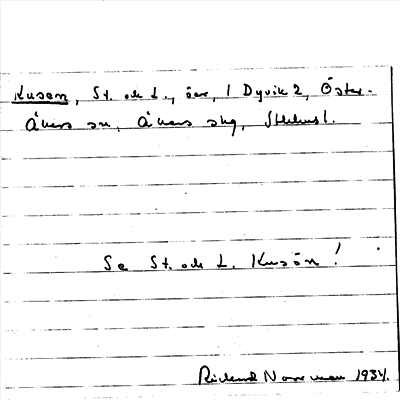 Kusen, St. och L., öar, i Dyvik 2, Öster-
Åkers sn, Åkers skg, Sthlms l.
Se St. och L. Kusön!
Rickard Norrman 1934.